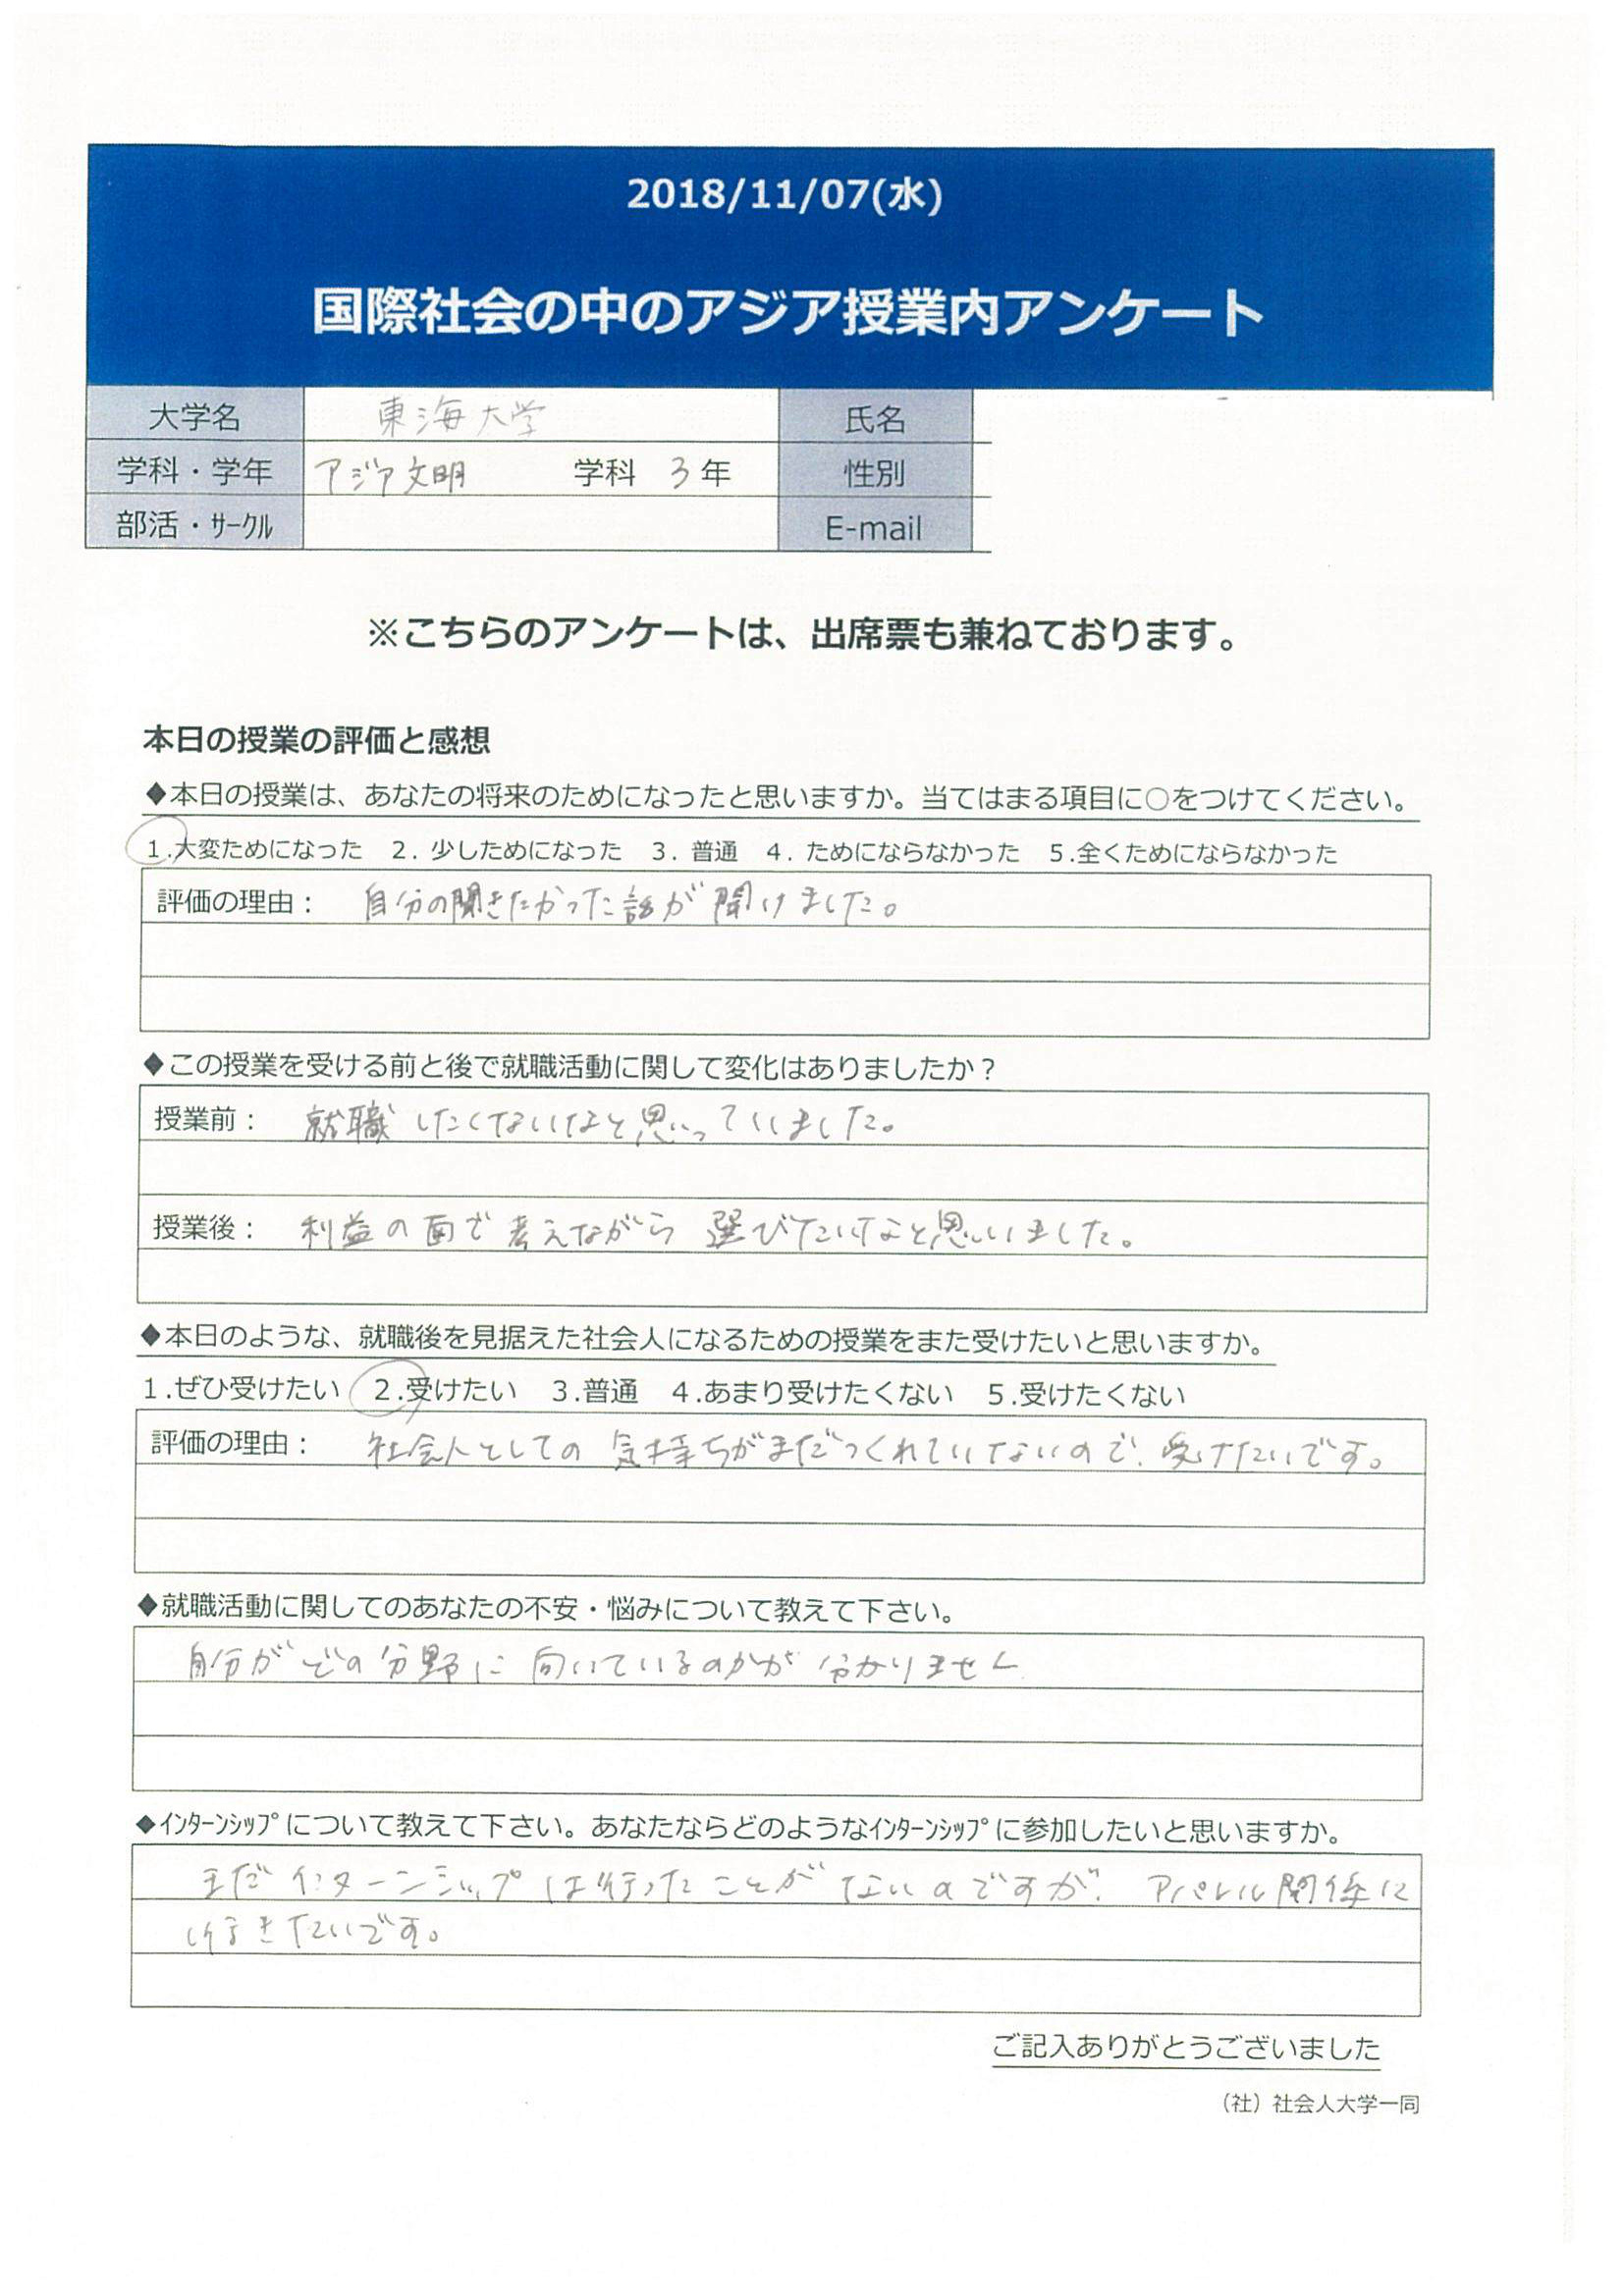 2018/11/07(水)
国際社会の中のアジア授業内アンケート
大学名 東海大学 氏名
学科・学年 アジア文明 学科 3年 性別
部活・ｻｰｸﾙ E-mail
※こちらのアンケートは、出席票も兼ねております。
本日の授業の評価と感想
◆本日の授業は、あなたの将来のためになったと思いますか。当てはまる項目に○をつけてください。
1.大変ためになった 2. 少しためになった 3. 普通 4. ためにならなかった 5.全くためにならなかった
評価の理由： 自分の聞きたかった話が聞けました。
◆この授業を受ける前と後で就職活動に関して変化はありましたか？
授業前： 就職したくないなと思っていました。
授業後： 利益の面で考えながら選びたいなと思いました。
◆本日のような、就職後を見据えた社会人になるための授業をまた受けたいと思いますか。
1.ぜひ受けたい 2.受けたい 3.普通 4.あまり受けたくない 5.受けたくない
評価の理由： 社会人としての気持ちがまだつくれていないので、受けたいです。
◆就職活動に関してのあなたの不安・悩みについて教えて下さい。
自分がどの分野に向いているのかが分かりません
◆ｲﾝﾀｰﾝｼｯﾌﾟについて教えて下さい。あなたならどのようなｲﾝﾀｰﾝｼｯﾌﾟに参加したいと思いますか。
まだインターンシップは行ったことがないのですが、アパレル関係に
行きたいです。
ご記入ありがとうございました
（社）社会人大学一同